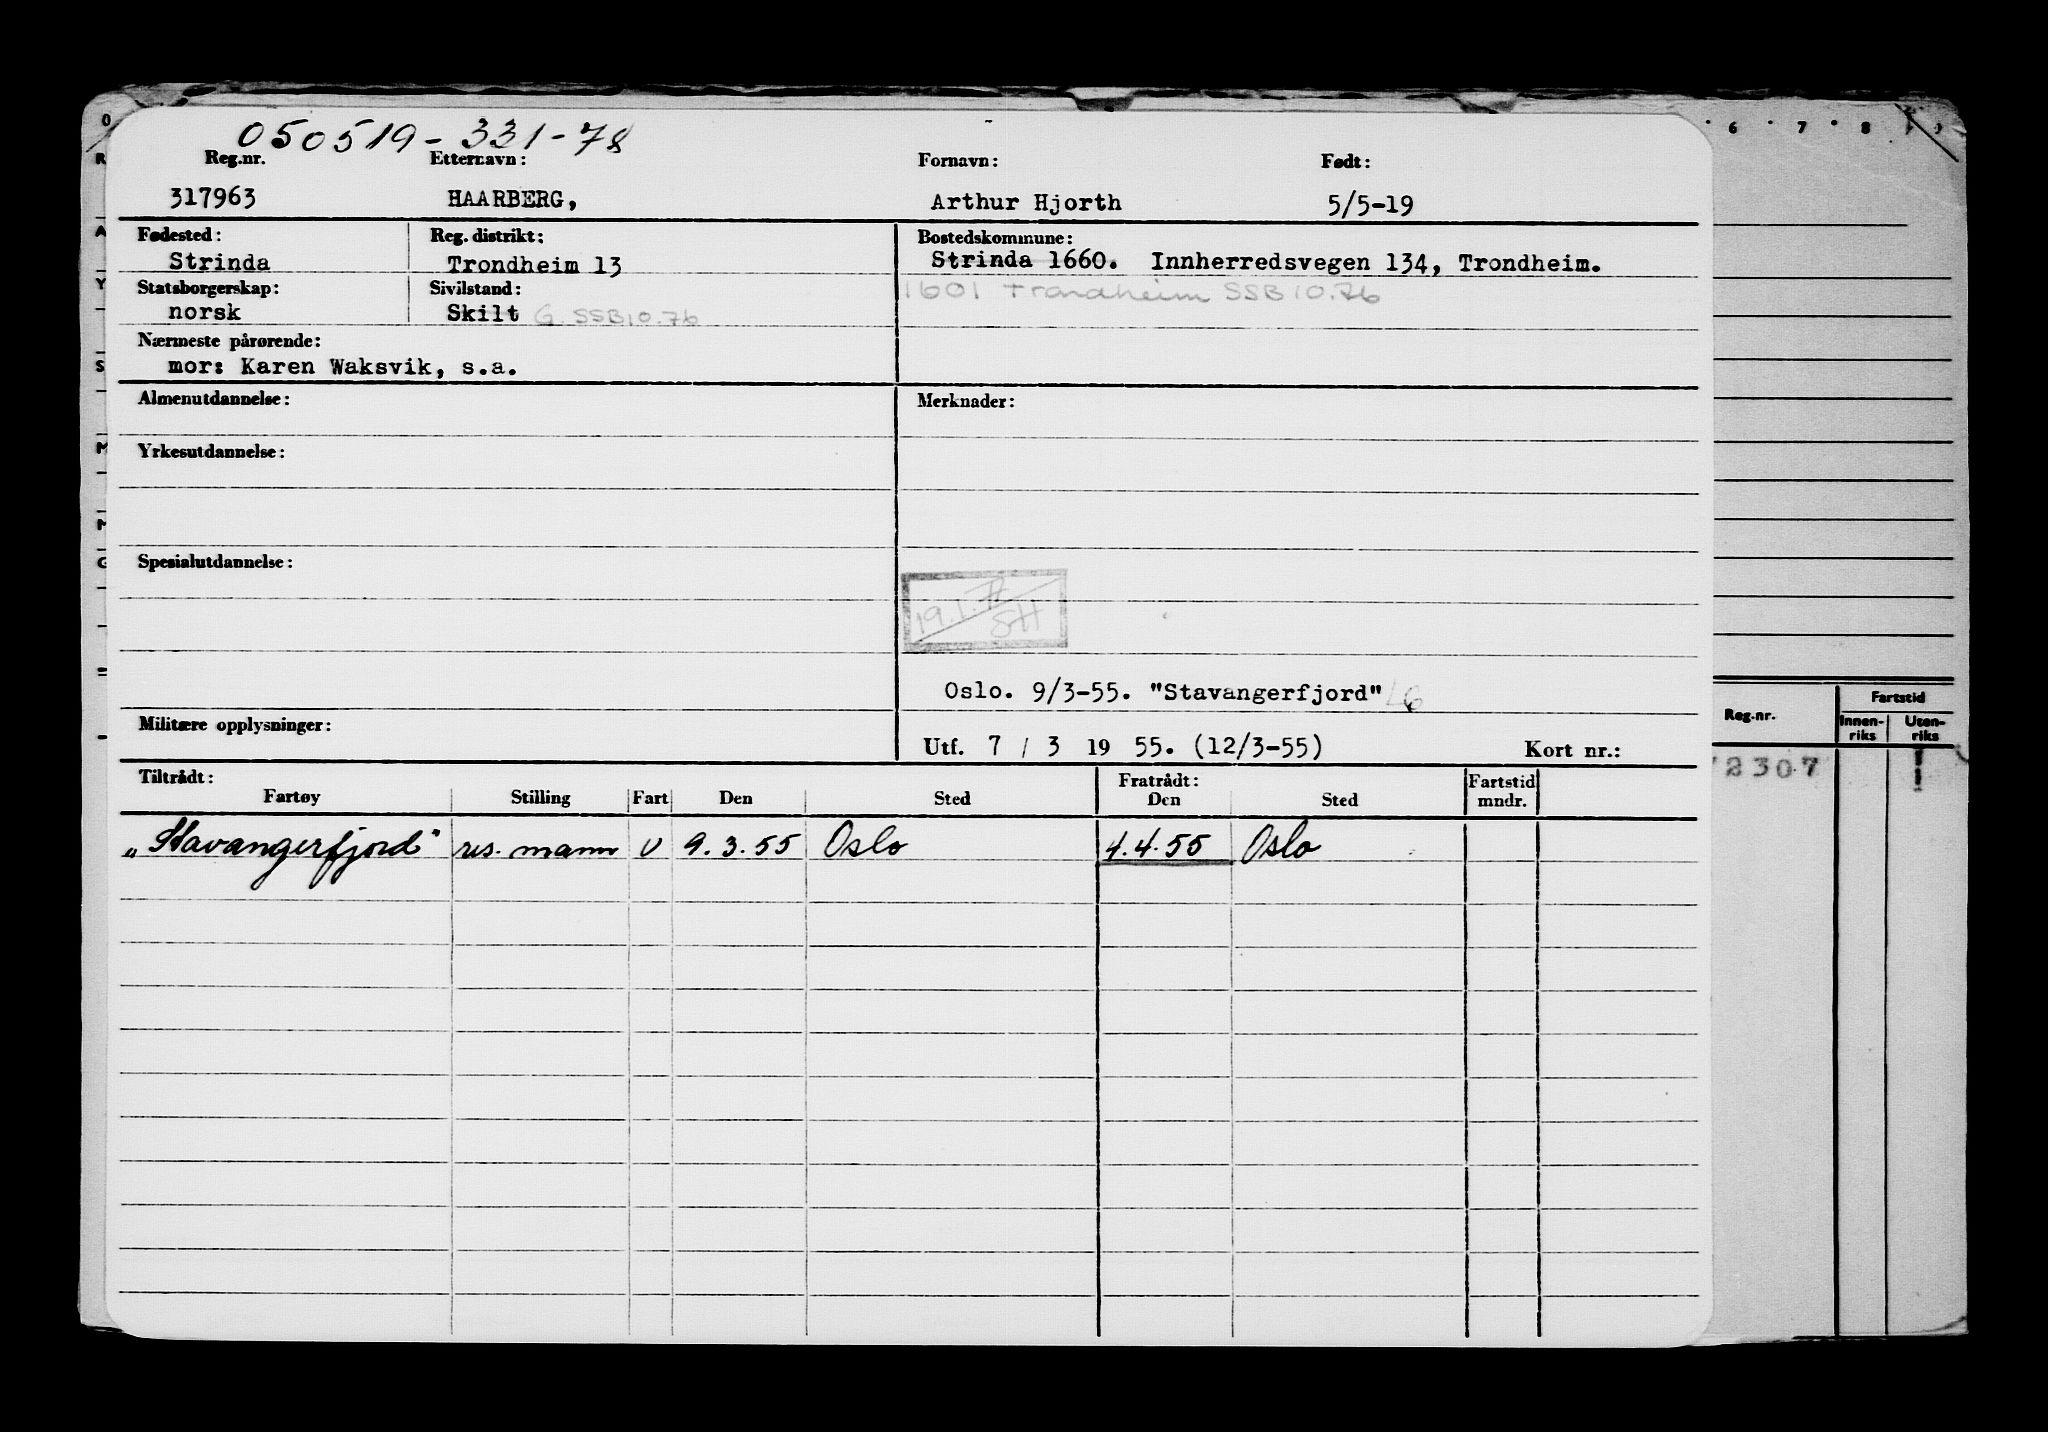 050519-331-78
Reg.nr. Etternavn: Fornavn: Født:
317963 HAARBERG, Arthur Hjorth 5/5-19
Fødested: Reg. distrikt: Bostedskommune:
Strinda Trondheim 13 Strinda 1660. Innherredsvegen 134, Trondheim.
Statsborgerskap: Sivilstand: 1601 Trondheim SSB 10.76
norsk Skilt G. SSB 10.76
Nærmeste pårørende:
mor: Karen Waksvik, s.a.
Almenutdannelse: Merknader:
Yrkesutdannelse:
Spesialutdannelse:
19.1.77
SH
Oslo. 9/3-55. "Stavangerfjord"
Militære opplysninger:
Utf. 7 / 3 19 55. (12/3-55) Kort nr.:
Tiltrådt: Fratrådt: Fartstid
Fartøy Stilling Fart Den Sted Den Sted mndr.
„Stavangerfjord" res. mann U 9.3.55 Oslo 4.4.55 Oslo
6 7 8
Fartstid
Reg.nr. Innen- Uten-
riks riks
2307